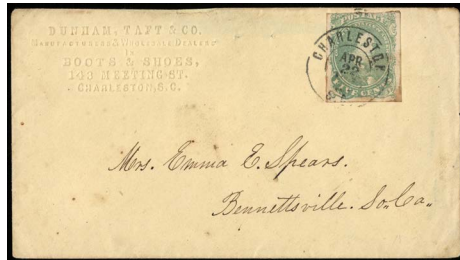 DUNHAM, TAFT & CO.
MANUFACTURERS & WHOLESALE DEALERS
IN
BOOTS & SHOES,
143 MEETING-ST.
CHARLESTON, S.C.
POSTAGE
CHARLESTON
APR
CENTS
Mrs. Emma E. Spears.
Bennettsville. So. Ca.